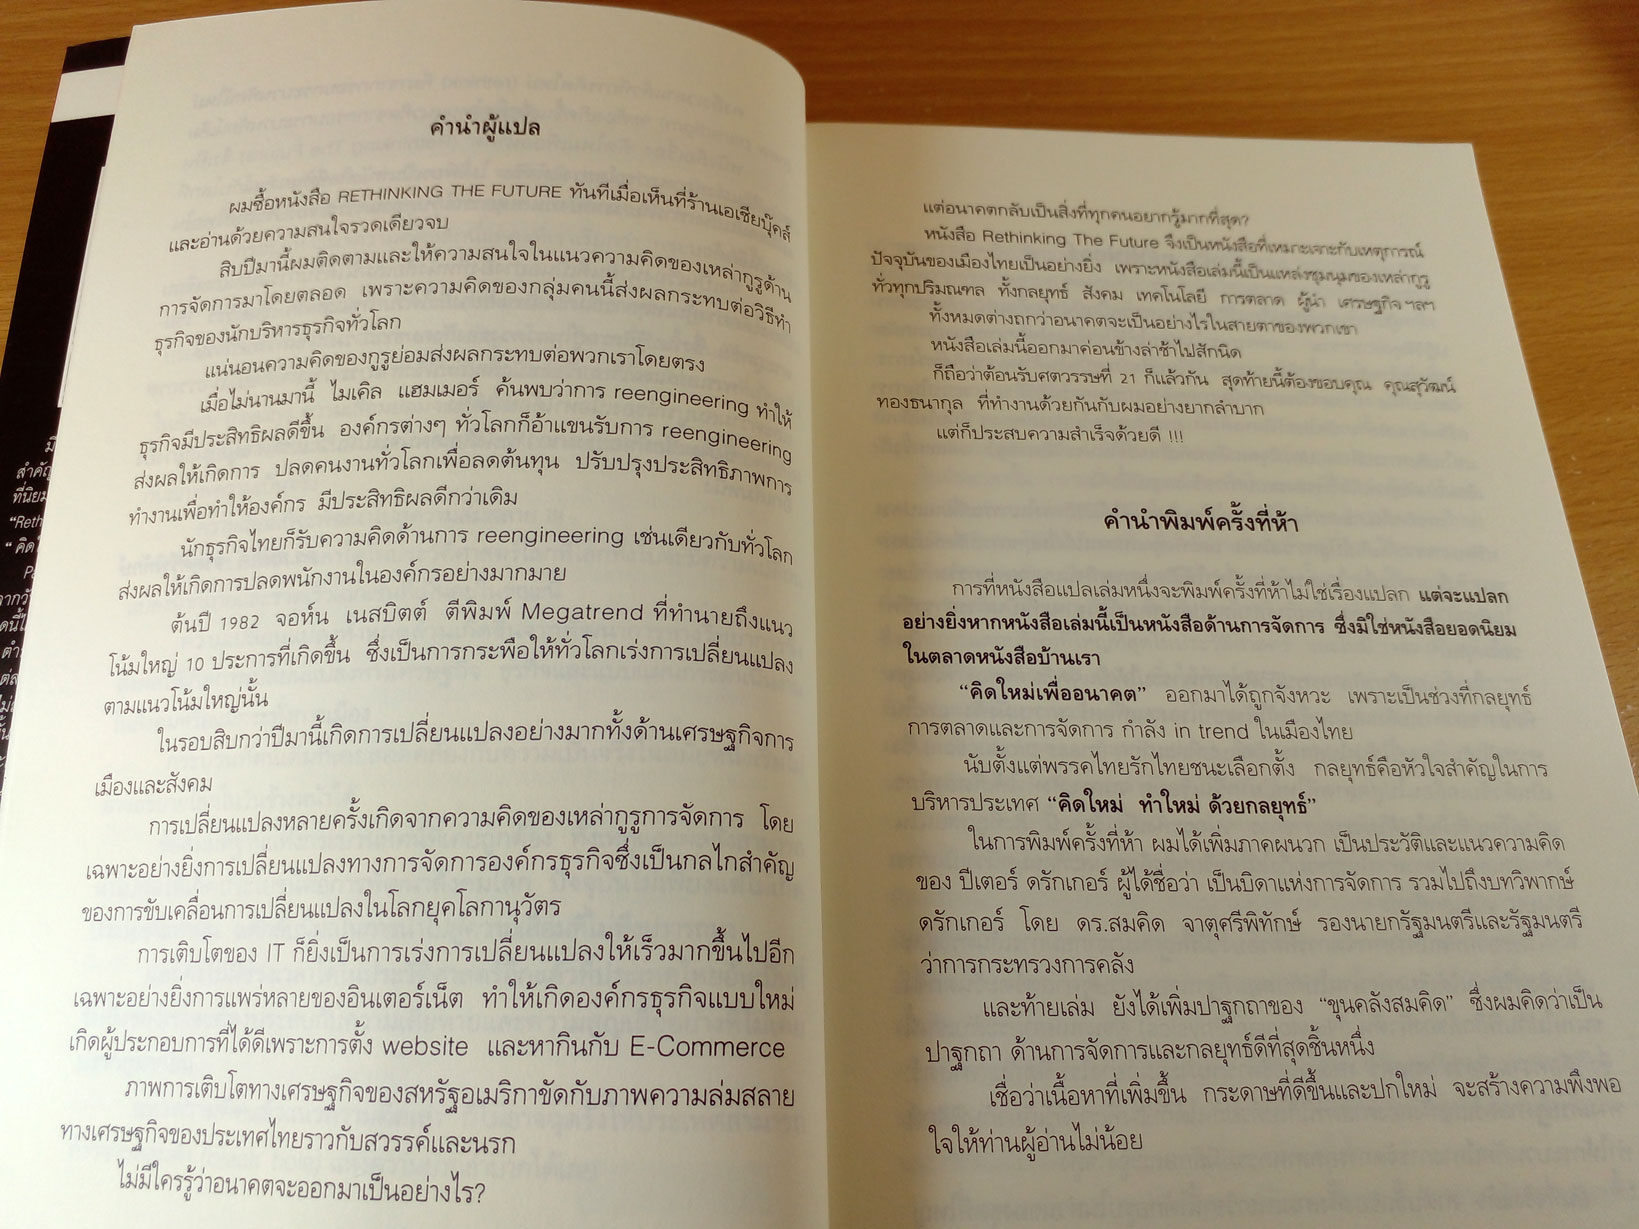 คำนำผู้แปล
ผมซื้อหนังสือ RETHINKING THE FUTURE ทันทีเมื่อเห็นที่ร้านเอเซียบุ๊คส์
และอ่านด้วยความสนใจรวดเดียวจบ
สิบปีมานี้ผมติดตามและให้ความสนใจในแนวความคิดของเหล่ากูรูด้าน
การจัดการมาโดยตลอด เพราะความคิดของกลุ่มคนนี้ส่งผลกระทบต่อวิธีทำ
ธุรกิจของนักบริหารธุรกิจทั่วโลก
แน่นอนความคิดของกูรูย่อมส่งผลกระทบต่อพวกเราโดยตรง
เมื่อไม่นานมานี้ ไมเคิล แฮมเมอร์ ค้นพบว่าการ reengineering ทำให้
ธุรกิจมีประสิทธิผลดีขึ้น องค์กรต่างๆ ทั่วโลกก็อ้าแขนรับการ reengineering
ส่งผลให้เกิดการ ปลดคนงานทั่วโลกเพื่อลดต้นทุน ปรับปรุงประสิทธิภาพการ
ทำงานเพื่อทำให้องค์กร มีประสิทธิผลดีกว่าเดิม
นักธุรกิจไทยก็รับความคิดด้านการ reengineering เช่นเดียวกับทั่วโลก
ส่งผลให้เกิดการปลดพนักงานในองค์กรอย่างมากมาย
ต้นปี 1982 จอห์น เนสบิตต์ ตีพิมพ์ Megatrend ที่ทำนายถึงแนว
โน้มใหญ่ 10 ประการที่เกิดขึ้น ซึ่งเป็นการกระพือให้ทั่วโลกเร่งการเปลี่ยนแปลง
ตามแนวโน้มใหญ่นั้น
ในรอบสิบกว่าปีมานี้เกิดการเปลี่ยนแปลงอย่างมากทั้งด้านเศรษฐกิจการ
เมืองและสังคม
การเปลี่ยนแปลงหลายครั้งเกิดจากความคิดของเหล่ากูรูการจัดการ โดย
เฉพาะอย่างยิ่งการเปลี่ยนแปลงทางการจัดการองค์กรธุรกิจซึ่งเป็นกลไกสำคัญ
ของการขับเคลื่อนการเปลี่ยนแปลงในโลกยุคโลกานุวัตร
การเติบโตของ IT ก็ยิ่งเป็นการเร่งการเปลี่ยนแปลงให้เร็วมากขึ้นไปอีก
เฉพาะอย่างยิ่งการแพร่หลายของอินเตอร์เน็ต ทำให้เกิดองค์กรธุรกิจแบบใหม่
เกิดผู้ประกอบการที่ได้ดีเพราะการตั้ง website และหากินกับ E-Commerce
ภาพการเติบโตทางเศรษฐกิจของสหรัฐอเมริกาขัดกับภาพความล่มสลาย
ทางเศรษฐกิจของประเทศไทยราวกับสวรรค์และนรก
ไม่มีใครรู้ว่าอนาคตจะออกมาเป็นอย่างไร?
แต่อนาคตกลับเป็นสิ่งที่ทุกคนอยากรู้มากที่สุด?
หนังสือ Rethinking The Future จึงเป็นหนังสือที่เหมาะเจาะกับเหตุการณ์
ปัจจุบันของเมืองไทยเป็นอย่างยิ่ง เพราะหนังสือเล่มนี้เป็นแหล่งชุมนุมของเหล่ากูรู
ทั่วทุกปริมณฑล ทั้งกลยุทธ์ สังคม เทคโนโลยี การตลาด ผู้นำ เศรษฐกิจ ฯลฯ
ทั้งหมดต่างถกว่าอนาคตจะเป็นอย่างไรในสายตาของพวกเขา
หนังสือเล่มนี้ออกมาค่อนข้างล่าช้าไปสักนิด
ก็ถือว่าต้อนรับศตวรรษที่ 21 ก็แล้วกัน สุดท้ายนี้ต้องขอบคุณ คุณสุวัฒน์
ทองธนากุล ที่ทำงานด้วยกันกับผมอย่างยากลำบาก
แต่ก็ประสบความสำเร็จด้วยดี !!!
คำนำพิมพ์ครั้งที่ห้า
การที่หนังสือแปลเล่มหนึ่งจะพิมพ์ครั้งที่ห้าไม่ใช่เรื่องแปลก แต่จะแปลก
อย่างยิ่งหากหนังสือเล่มนี้เป็นหนังสือด้านการจัดการ ซึ่งมิใช่หนังสือยอดนิยม
ในตลาดหนังสือบ้านเรา
“คิดใหม่เพื่ออนาคต” ออกมาได้ถูกจังหวะ เพราะเป็นช่วงที่กลยุทธ์
การตลาดและการจัดการ กำลัง in trend ในเมืองไทย
นับตั้งแต่พรรคไทยรักไทยชนะเลือกตั้ง กลยุทธ์คือหัวใจสำคัญในการ
บริหารประเทศ “คิดใหม่ ทำใหม่ ด้วยกลยุทธ์”
ในการพิมพ์ครั้งที่ห้า ผมได้เพิ่มภาคผนวก เป็นประวัติและแนวความคิด
ของ ปีเตอร์ ดรักเกอร์ ผู้ได้ชื่อว่า เป็นบิดาแห่งการจัดการ รวมไปถึงบทวิพากษ์
ดรักเกอร์ โดย ดร.สมคิด จาตุศรีพิทักษ์ รองนายกรัฐมนตรีและรัฐมนตรี
ว่าการกระทรวงการคลัง
และท้ายเล่ม ยังได้เพิ่มปาฐกถาของ “ขุนคลังสมคิด” ซึ่งผมคิดว่าเป็น
ปาฐกถา ด้านการจัดการและกลยุทธ์ดีที่สุดชิ้นหนึ่ง
เชื่อว่าเนื้อหาที่เพิ่มขึ้น กระดาษที่ดีขึ้นและปกใหม่ จะสร้างความพึงพอ
ใจให้ท่านผู้อ่านไม่น้อย